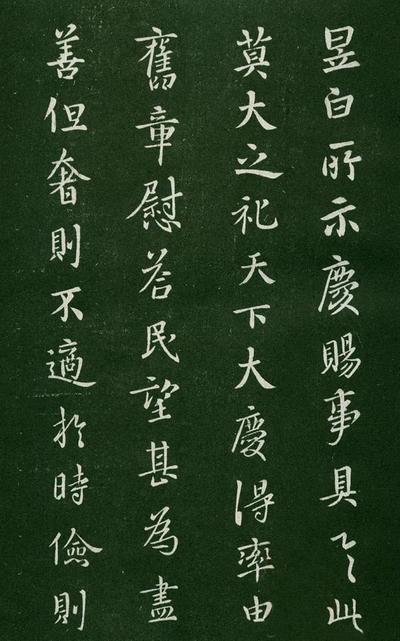 昱白所示慶賜事具之此
莫大之祀天下大慶得率由
舊章慰荅民望甚為盡
善但奢則不適扵時儉則